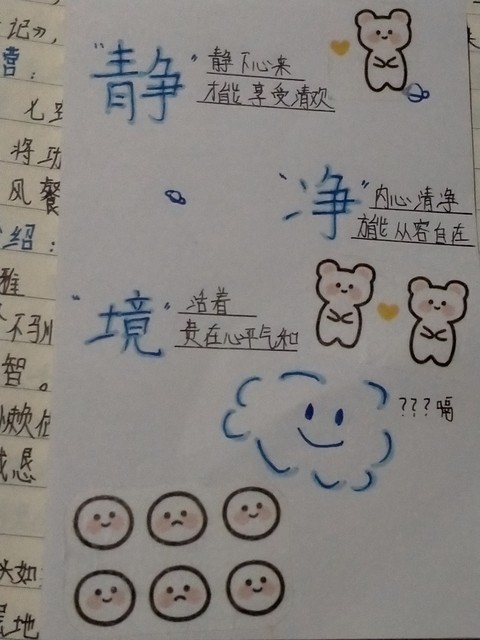 “静”
静下心来
才能享受清欢
“净”
内心清净
方能从容自在
“境”
活着
贵在心平气和
???嗝
记》,
营:
将功
风餐
绍:
雅
不到
智。
懒欢在
恳
头如
地